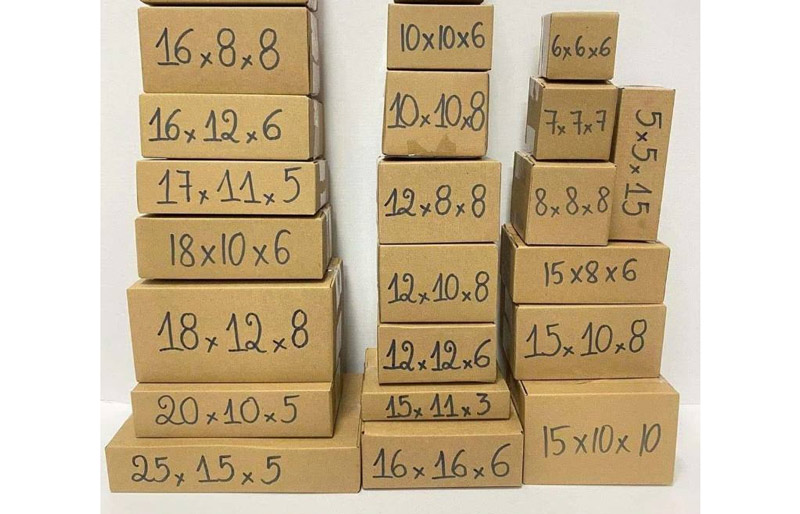 16x8x8
16x12x6
17x11x5
18x10x6
18x12x8
20x10x5
25x15x5
10x10x6
10x10x8
12x8x8
12x10x8
12x12x6
15x11x3
16x16x6
6x6x6
7x7x7
8x8x8
5x5x15
15x8x6
15x10x8
15x10x10